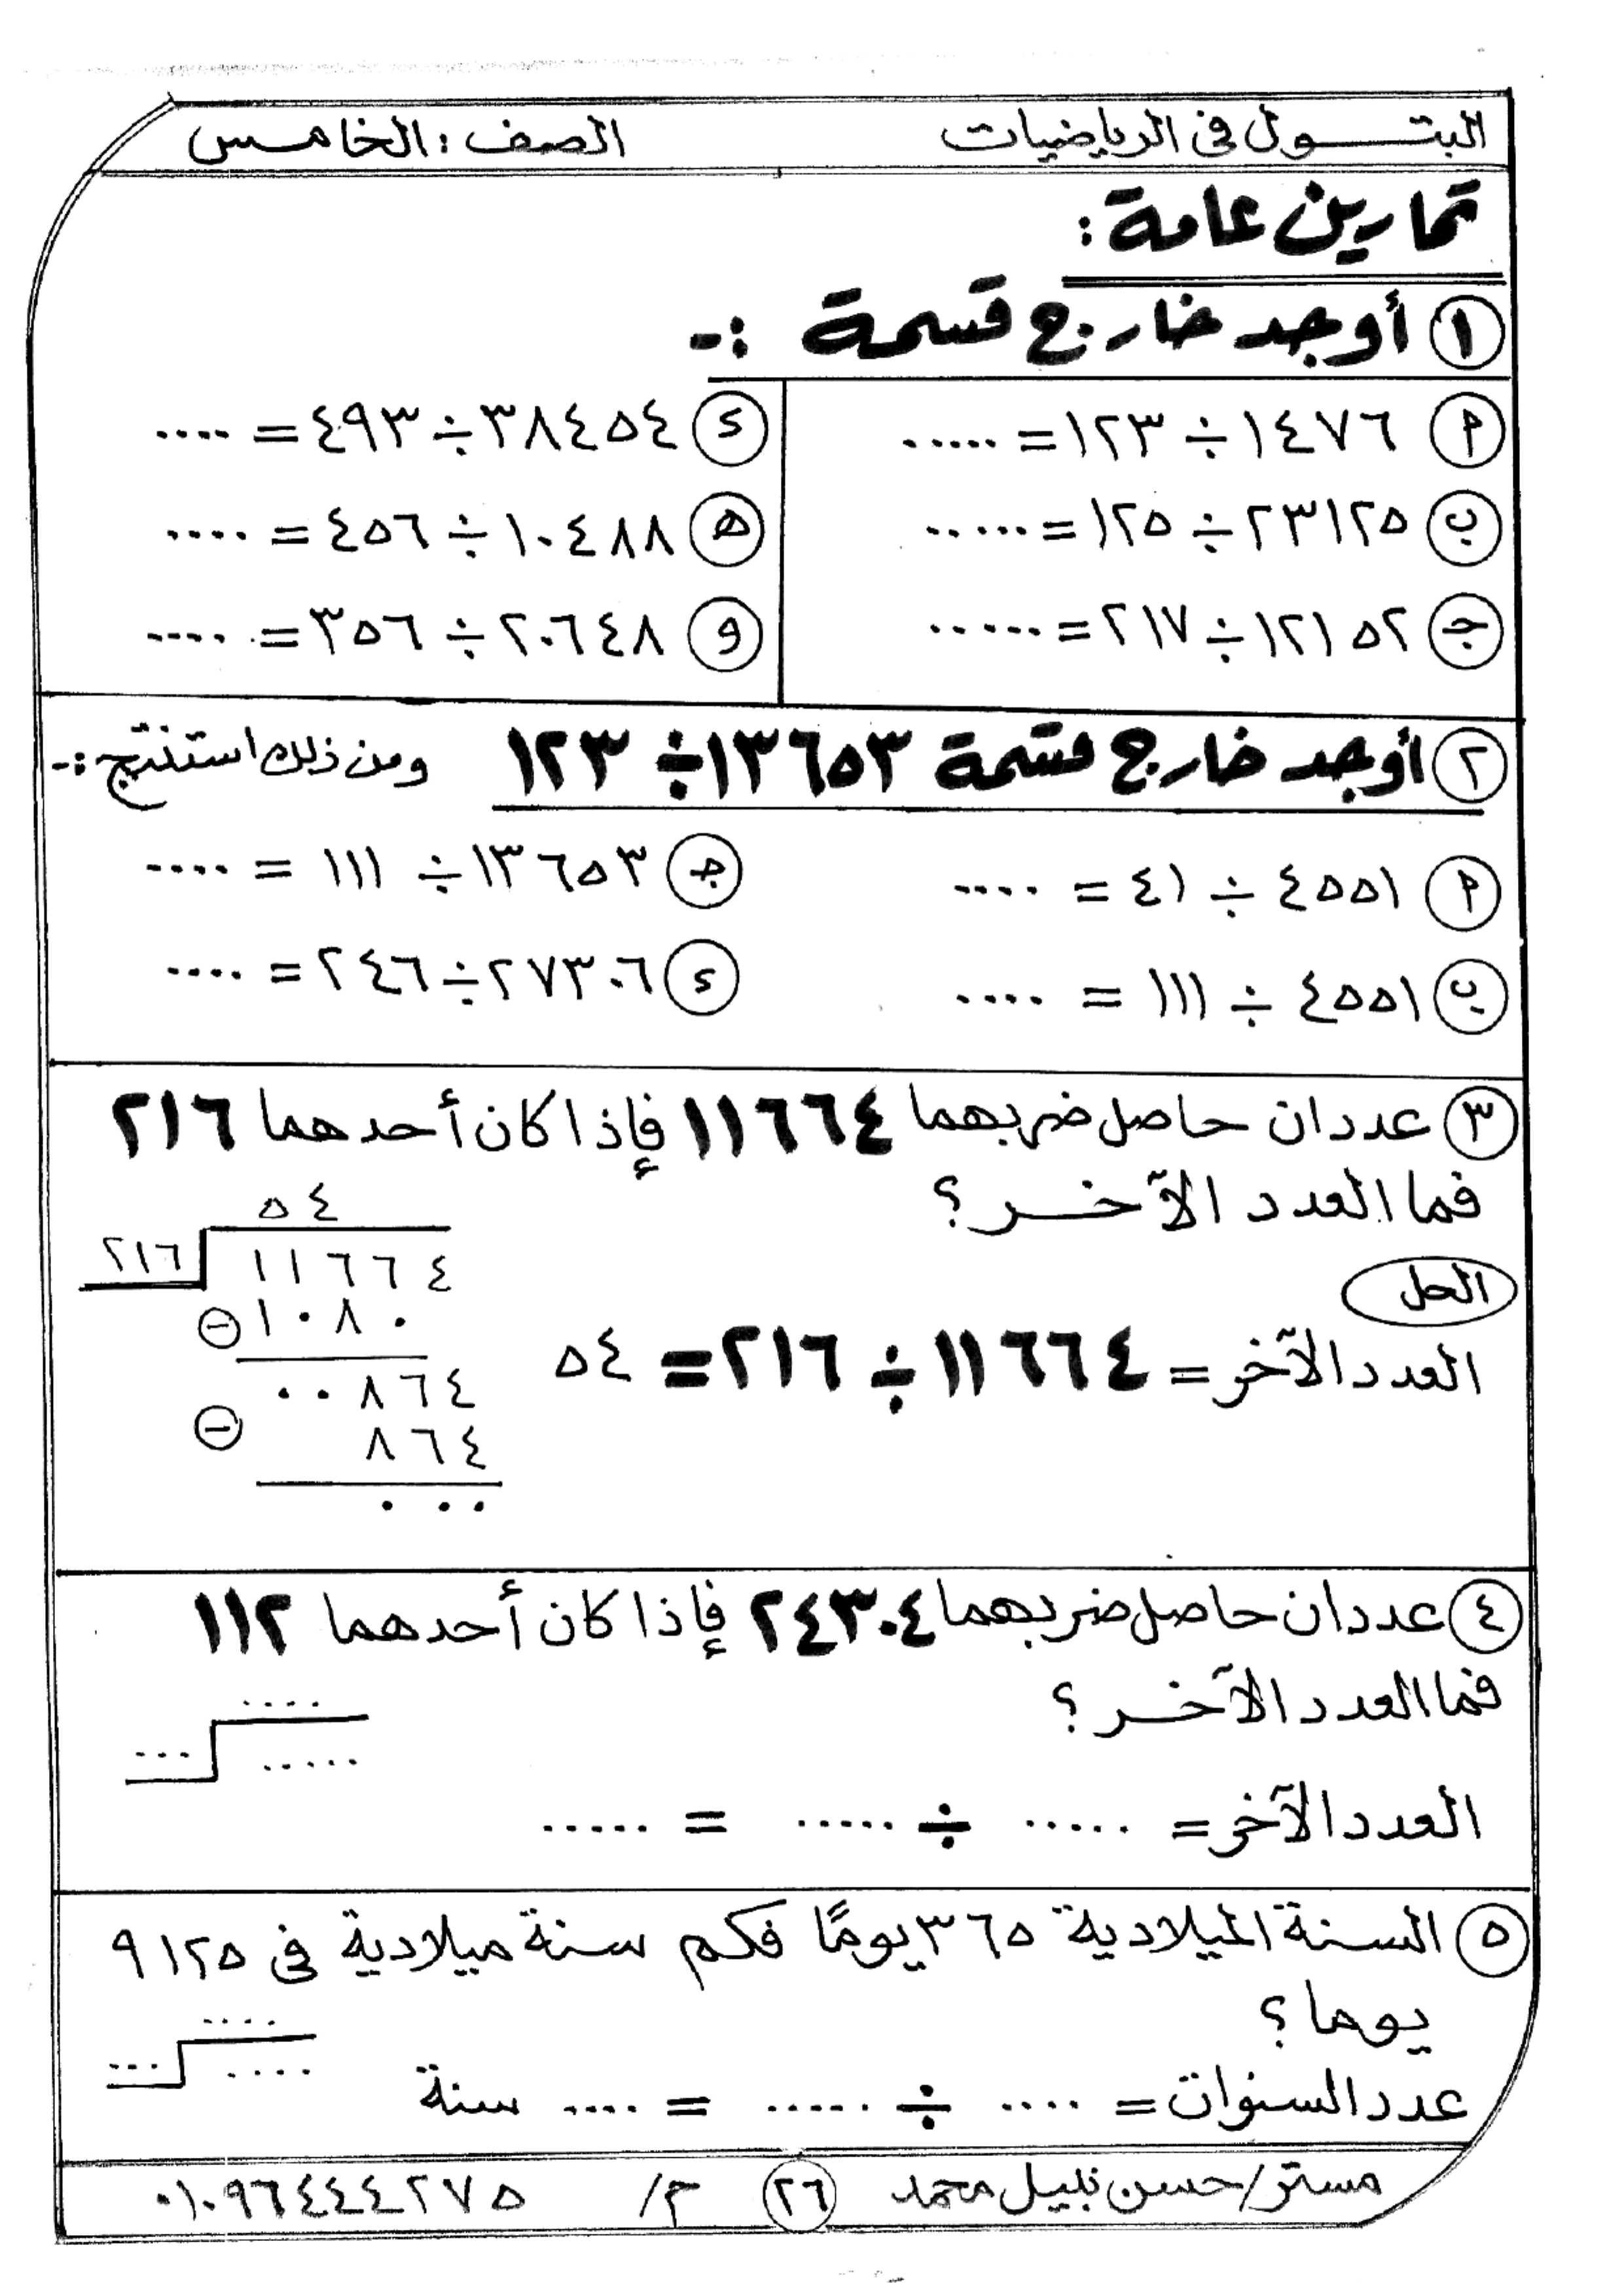 البتول فى الرياضيات
الصف : الخامس
تمارين عامة :
١ أوجد خارج قسمة :-
م ١٤٧٦ ÷ ١٢٣ = .....
ب ٢٣١٢٥ ÷ ١٢٥ = ......
جـ ١٢١٥٢ ÷ ٢١٧ = ......
د ٣٨٤٥٤ ÷ ٤٩٣ = ....
هـ ١٠٤٨٨ ÷ ٤٥٦ = ....
و ٢٠٦٤٨ ÷ ٣٥٦ = ....
٢ أوجد خارج قسمة ١٣٦٥٣ ÷ ١٢٣ ومن ذلك استنتج :-
م ٤٥٥١ ÷ ٤١ = ....
جـ ١٣٦٥٣ ÷ ١١١ = ....
ب ٤٥٥١ ÷ ١١١ = ....
د ٢٧٣٠٦ ÷ ٢٤٦ = ....
٣ عددان حاصل ضربهما ١١٦٦٤ فإذا كان أحدهما ٢١٦
فما العدد الآخر ؟
الحل
العدد الآخر = ١١٦٦٤ ÷ ٢١٦ = ٥٤
٥٤
٢١٦ ١١٦٦٤
- ١٠٨٠
٠٠٨٦٤
- ٨٦٤
٠٠٠
٤ عددان حاصل ضربهما ٢٤٣٠٤ فإذا كان أحدهما ١١٢
فما العدد الآخر ؟
....
... .....
العدد الآخر = ..... ÷ ..... = .....
٥ السنة الميلادية ٣٦٥ يومًا فكم سنة ميلادية فى ٩١٢٥
يوما ؟
....
... ....
عدد السنوات = .... ÷ ..... = .... سنة
مستر/ حسن نبيل محمد ٢٦ م/ ٠١٠٩٦٤٤٤٢٧٥